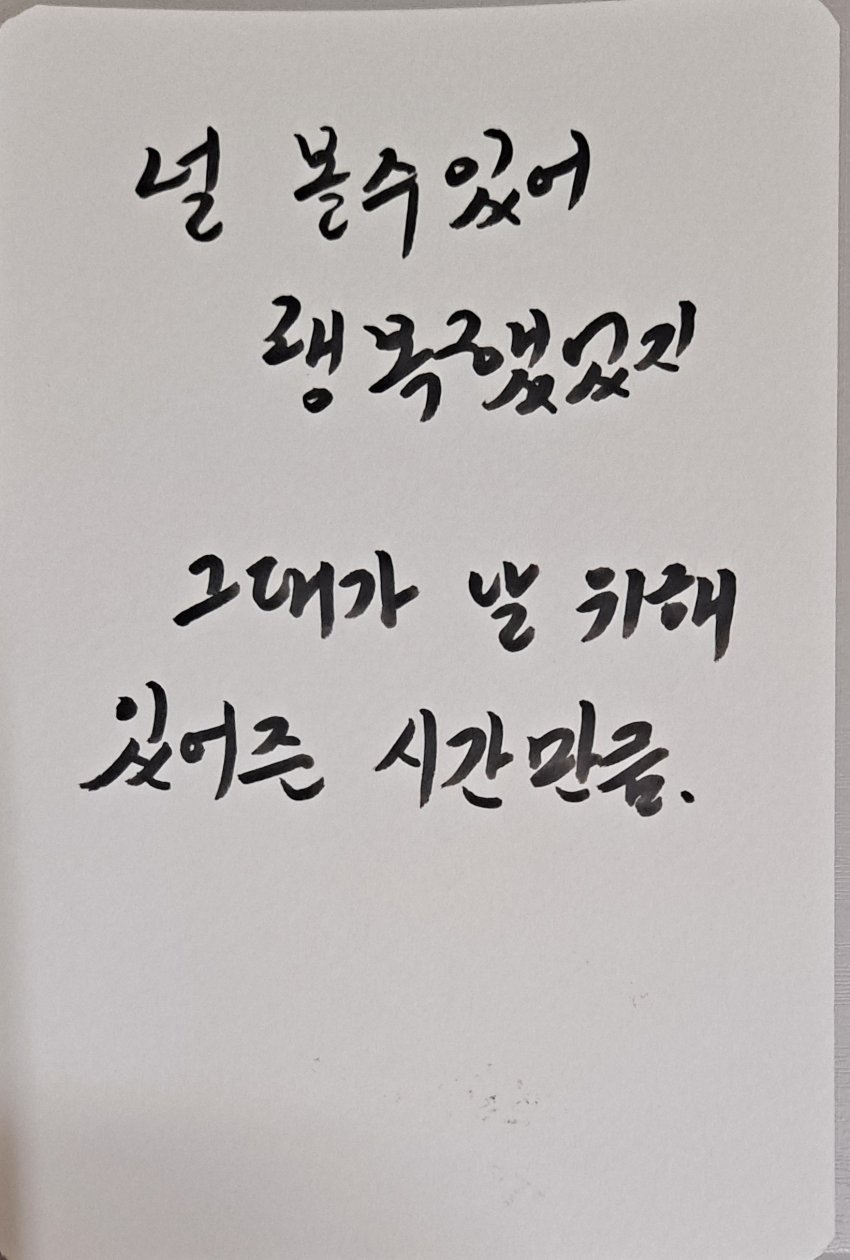 널 볼수있어
행복했었지
그대가 날 위해
있어준 시간만큼.